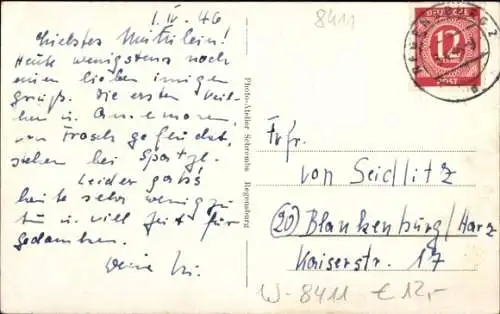 1. IV. 46
Liebstes Mutterlein!
Heute wenigstens noch
einen lieben innigen
Gruß. Die ersten Veil-
chen u. Anemonen,
von Frosch gepflückt,
stehen bei
Leider gab's
heute sehr wenig zu
tun u. viel Zeit für
Gedanken.
Deine
Photo-Atelier Schrembs Regensburg
8411
DEUTSCHE
12
PFENNIG
POST
REGENSBURG 2
Frfr.
von Seidlitz
(20) Blankenburg/Harz
Kaiserstr. 17
W-8411 € 12,-